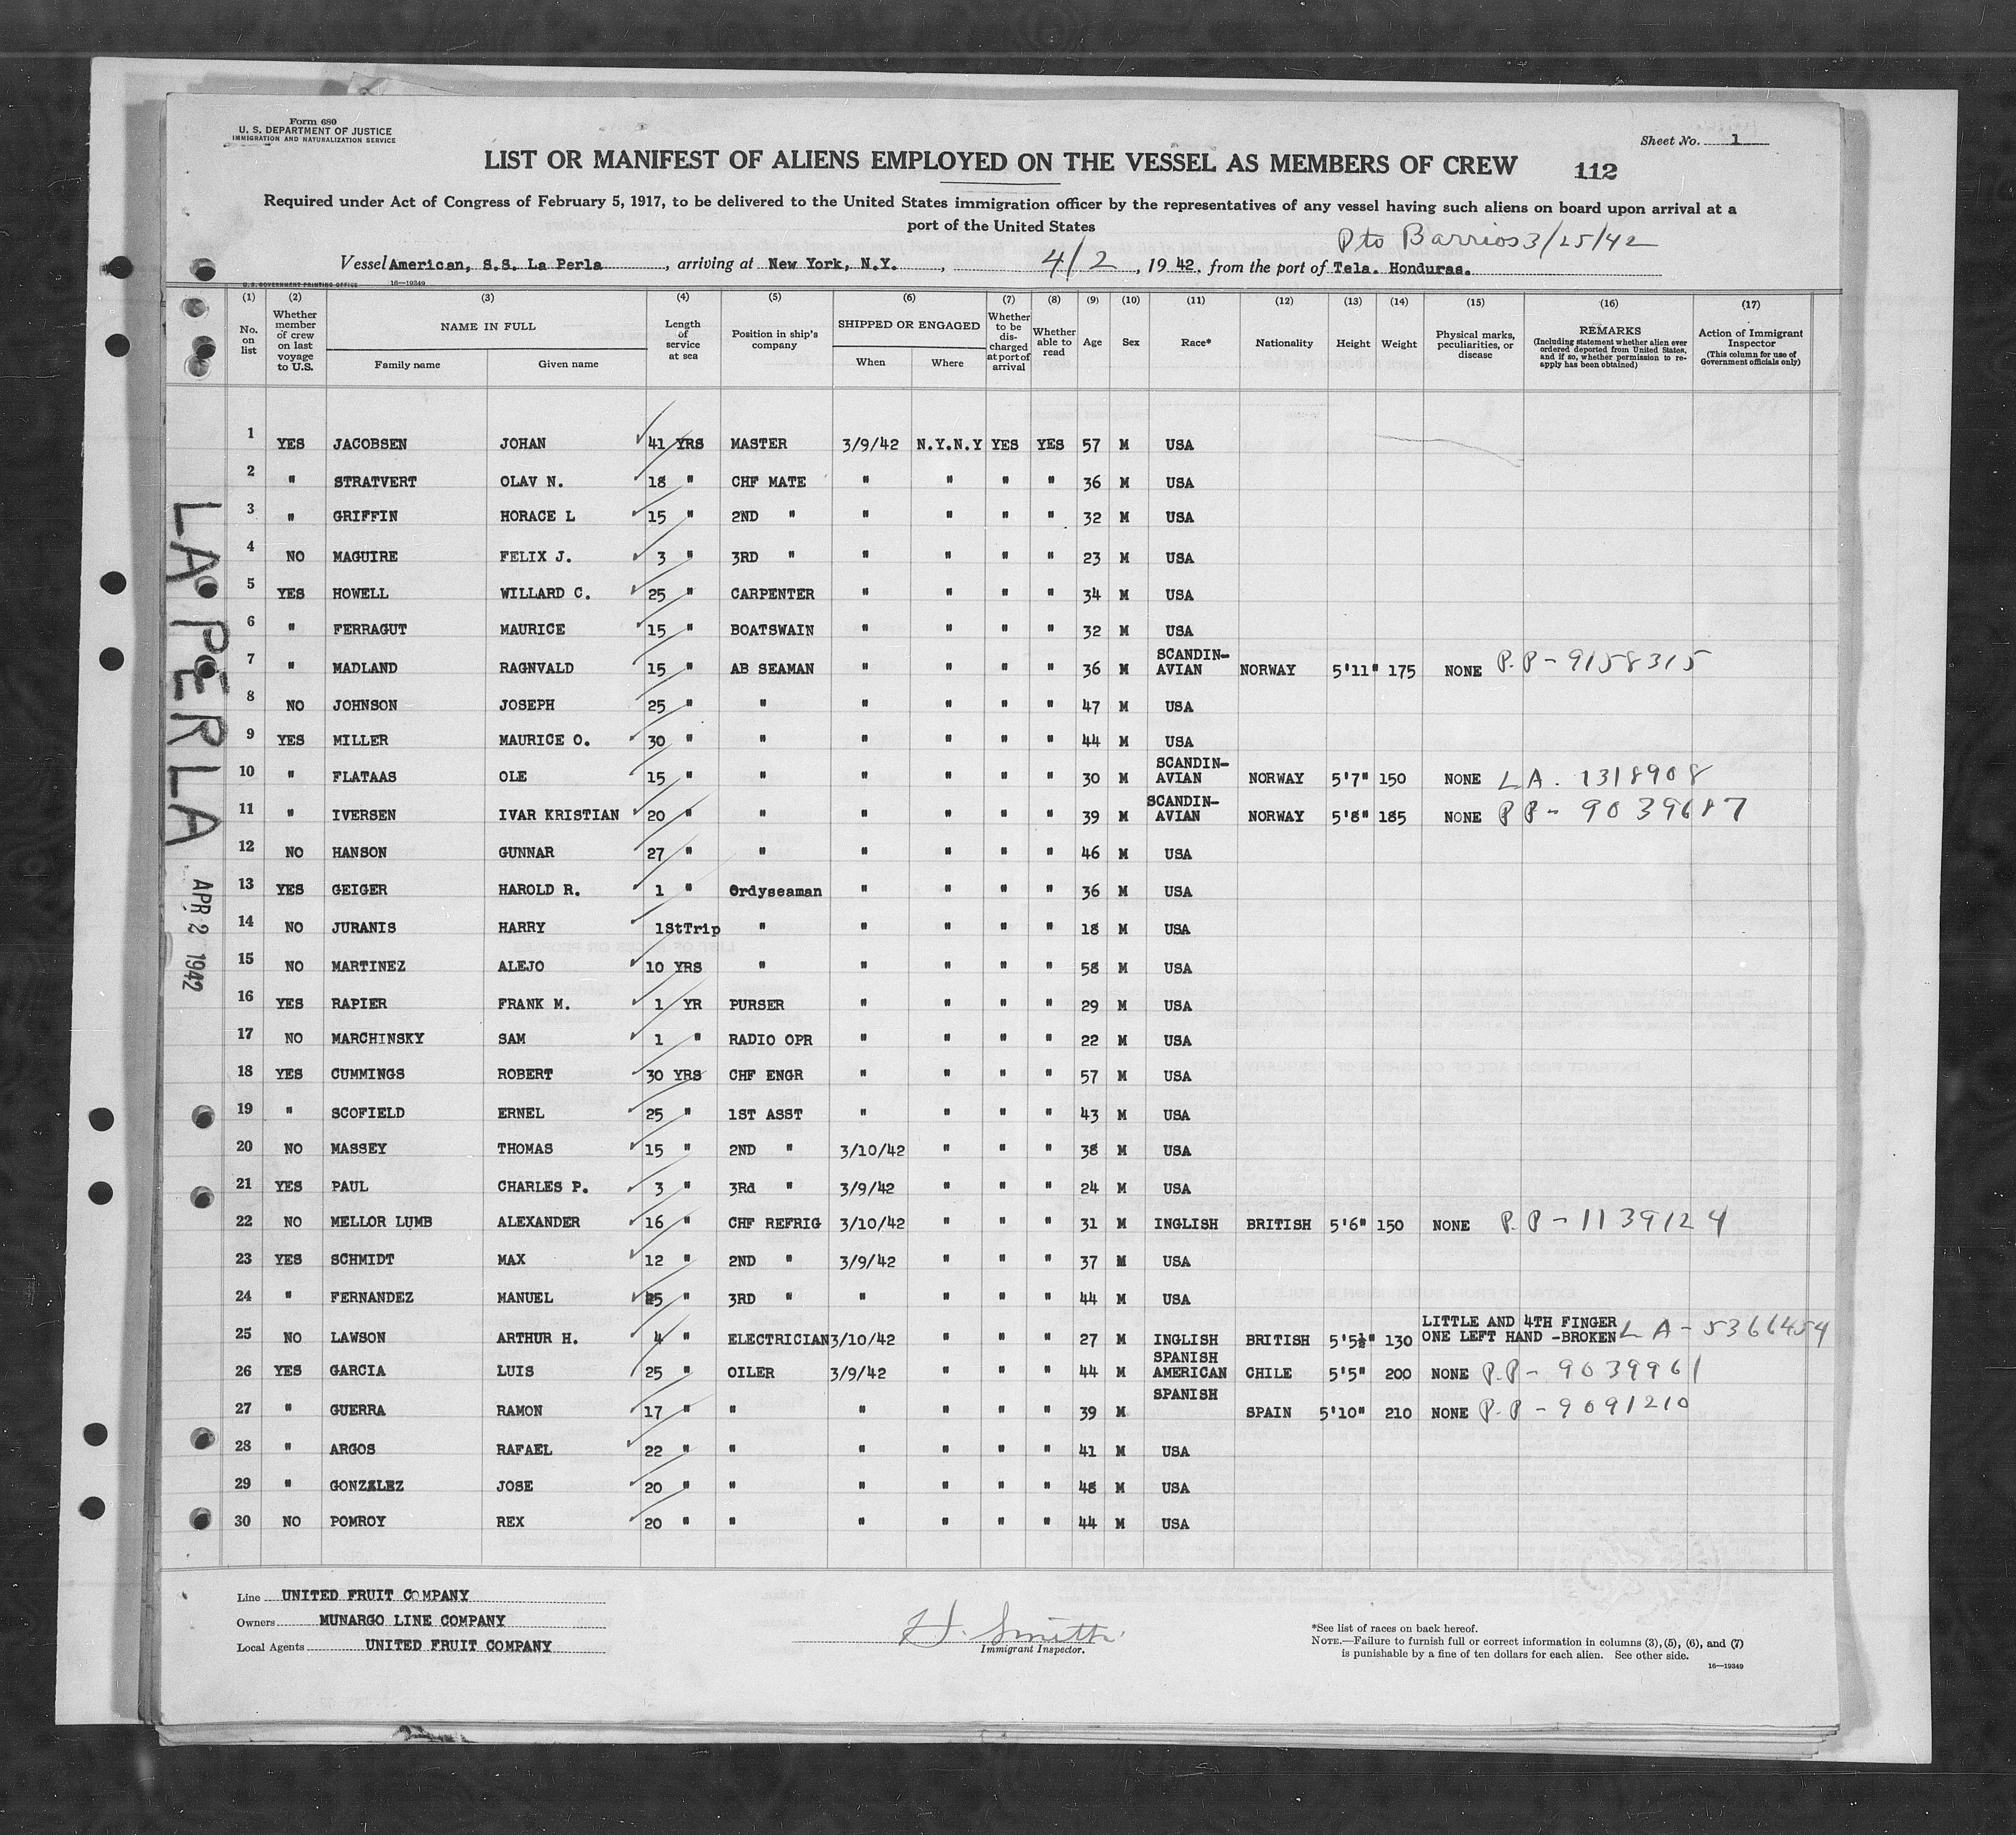 Form 680
U. S. DEPARTMENT OF JUSTICE
IMMIGRATION AND NATURALIZATION SERVICE
Sheet No. 1
LIST OR MANIFEST OF ALIENS EMPLOYED ON THE VESSEL AS MEMBERS OF CREW 112
Required under Act of Congress of February 5, 1917, to be delivered to the United States immigration officer by the representatives of any vessel having such aliens on board upon arrival at a
port of the United States
Pto Barrios 3/25/42
Vessel American, S.S. La Perla, arriving at New York, N.Y., 4/2, 19 42. from the port of Tela. Honduras.
U. S. GOVERNMENT PRINTING OFFICE 16—19349
(1) (2) (3) (4) (5) (6) (7) (8) (9) (10) (11) (12) (13) (14) (15) (16) (17)
No. on list
Whether member of crew on last voyage to U.S.
NAME IN FULL
Family name
Given name
Length of service at sea
Position in ship's company
SHIPPED OR ENGAGED
When
Where
Whether to be discharged at port of arrival
Whether able to read
Age
Sex
Race*
Nationality
Height
Weight
Physical marks, peculiarities, or disease
REMARKS
(Including statement whether alien ever ordered deported from United States, and if so, whether permission to reapply has been obtained)
Action of Immigrant Inspector
(This column for use of Government officials only)
1 YES JACOBSEN JOHAN 41 YRS MASTER 3/9/42 N.Y.N.Y YES YES 57 M USA
2 " STRATVERT OLAV N. 18 " CHF MATE " " " " 36 M USA
3 " GRIFFIN HORACE L 15 " 2ND " " " " " 32 M USA
4 NO MAGUIRE FELIX J. 3 " 3RD " " " " " 23 M USA
5 YES HOWELL WILLARD C. 25 " CARPENTER " " " " 34 M USA
6 " FERRAGUT MAURICE 15 " BOATSWAIN " " " " 32 M USA
7 " MADLAND RAGNVALD 15 " AB SEAMAN " " " " 36 M SCANDIN-AVIAN NORWAY 5'11" 175 NONE P.P - 9158315
8 NO JOHNSON JOSEPH 25 " " " " " " 47 M USA
9 YES MILLER MAURICE O. 30 " " " " " " 44 M USA
10 " FLATAAS OLE 15 " " " " " " 30 M SCANDIN-AVIAN NORWAY 5'7" 150 NONE L A. 1318908
11 " IVERSEN IVAR KRISTIAN 20 " " " " " " 39 M SCANDIN-AVIAN NORWAY 5'8" 185 NONE P P - 9039687
12 NO HANSON GUNNAR 27 " " " " " " 46 M USA
13 YES GEIGER HAROLD R. 1 " Ordyseaman " " " " 36 M USA
14 NO JURANIS HARRY 1StTrip " " " " " 18 M USA
15 NO MARTINEZ ALEJO 10 YRS " " " " " 58 M USA
16 YES RAPIER FRANK M. 1 YR PURSER " " " " 29 M USA
17 NO MARCHINSKY SAM 1 " RADIO OPR " " " " 22 M USA
18 YES CUMMINGS ROBERT 30 YRS CHF ENGR " " " " 57 M USA
19 " SCOFIELD ERNEL 25 " 1ST ASST " " " " 43 M USA
20 NO MASSEY THOMAS 15 " 2ND " 3/10/42 " " " 38 M USA
21 YES PAUL CHARLES P. 3 " 3Rd " 3/9/42 " " " 24 M USA
22 NO MELLOR LUMB ALEXANDER 16 " CHF REFRIG 3/10/42 " " " 31 M INGLISH BRITISH 5'6" 150 NONE P.P - 1139124
23 YES SCHMIDT MAX 12 " 2ND " 3/9/42 " " " 37 M USA
24 " FERNANDEZ MANUEL 25 " 3RD " " " " " 44 M USA
25 NO LAWSON ARTHUR H. 4 " ELECTRICIAN 3/10/42 " " " 27 M INGLISH BRITISH 5'5½" 130 LITTLE AND 4TH FINGER ONE LEFT HAND -BROKEN L A - 5366454
26 YES GARCIA LUIS 25 " OILER 3/9/42 " " " 44 M SPANISH AMERICAN CHILE 5'5" 200 NONE P.P - 9039961
27 " GUERRA RAMON 17 " " " " " " 39 M SPANISH SPAIN 5'10" 210 NONE P.P - 9091210
28 " ARGOS RAFAEL 22 " " " " " " 41 M USA
29 " GONZALEZ JOSE 20 " " " " " " 48 M USA
30 NO POMROY REX 20 " " " " " " 44 M USA
LA PERLA
APR 2 1942
Line UNITED FRUIT COMPANY
Owners MUNARGO LINE COMPANY
Local Agents UNITED FRUIT COMPANY
H. Smith
Immigrant Inspector.
*See list of races on back hereof.
NOTE.—Failure to furnish full or correct information in columns (3), (5), (6), and (7)
is punishable by a fine of ten dollars for each alien. See other side.
16—19349